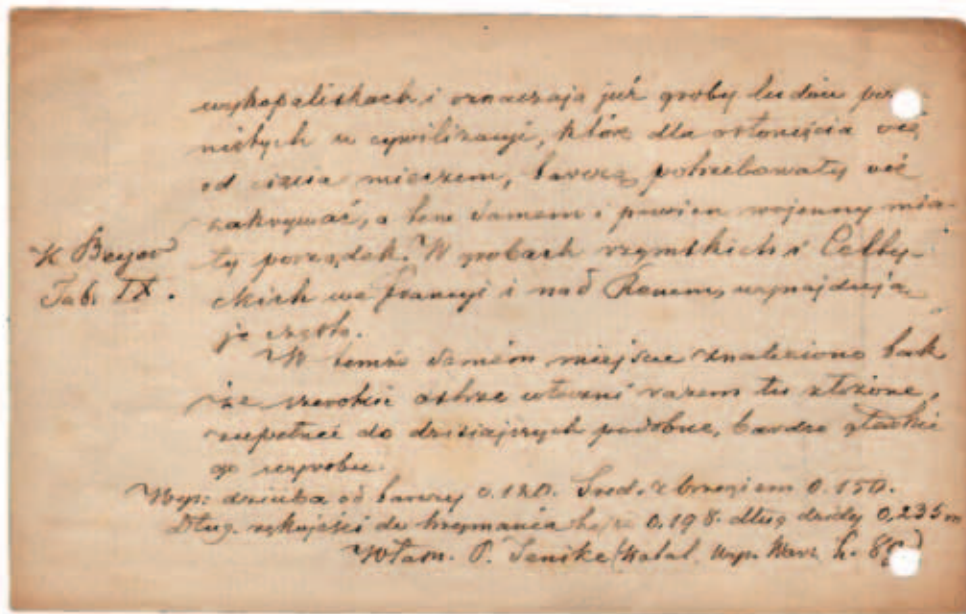 wykopaliskach i oznaczają już groby ludów
w cywilizacyi, które dla osłonięcia się
od cięcia mieczem, tarczą potrzebowały się
zakrywać, a tem samem i pewien wojenny mia-
ły porządek. W grobach rzymskich i Celty-
ckich we Francyi i nad Renem, wynajdują
je często.
K Beyer
Tab. IX.
W temże samem miejscu znaleziono tak
że szerokie ostrze włóczni razem tu złożone,
zupełnie do dzisiajszych podobne, bardzo gładkie
go wyrobu.
Wys: dzióba od tarczy 0.120. Śred. z brzegiem 0.150.
Dług. rękojeści do trzymania 0.198. dług dzidy 0,235 m
Włas. P. Lenike (Katal. Wyp. Warsz.